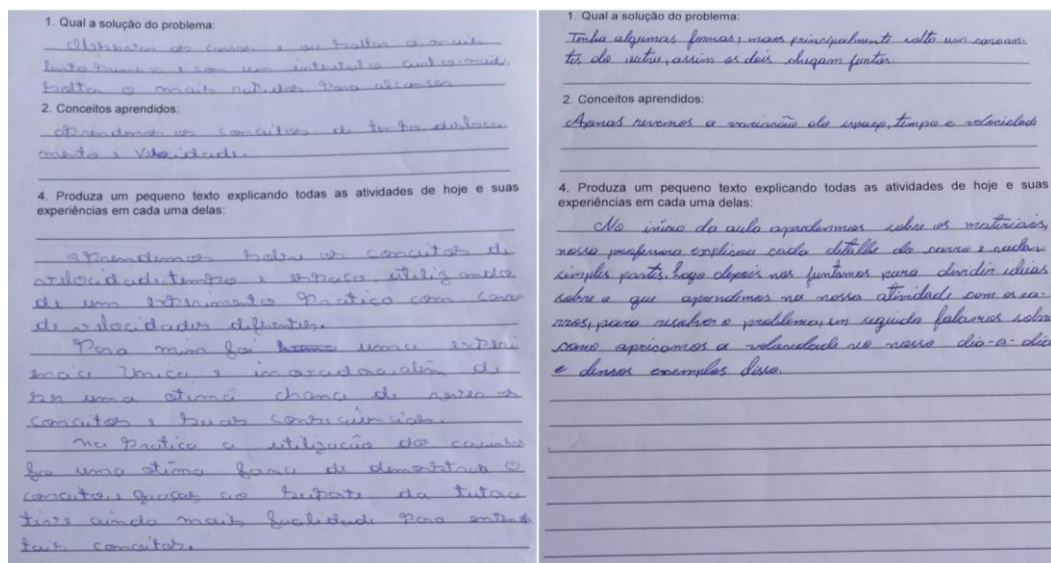 1. Qual a solução do problema:
os carros e ou soltar o mais
lento primeiro e com um intervalo
soltar o mais rapido para alcansar
2. Conceitos aprendidos:
aprendemos os conceitos de tempo, disloca
mento e Velocidade.
4. Produza um pequeno texto explicando todas as atividades de hoje e suas
experiências em cada uma delas:
aprendemos sobre os conceitos de
velocidade, tempo e espaço utilizando
de um experimento pratico com caros
de velocidades diferentes.
Para mim foi uma experi
encia unica e inovadora, alem de
ser uma otima chance de rever os
conceitos e suas consequencias.
na pratica a utilização dos carrinhos
foi uma otima forma de demonstrar o
conceito, e graças ao suporte da tutora
tive ainda mais facilidade para entender
tais conceitos.
1. Qual a solução do problema:
Tinha algumas formas, mais principalmente solto um carro an-
tes do outro, assim os dois chegam juntos.
2. Conceitos aprendidos:
Apenas revemos a variação do espaço, tempo e velocidade
4. Produza um pequeno texto explicando todas as atividades de hoje e suas
experiências em cada uma delas:
No início da aula aprendemos sobre os materiais,
nossa professora explicou cada detalhe do carro e cada
simples partes. Logo depois nos juntamos para dividir ideias
sobre o que aprendemos na nossa atividade com os ca-
rros, para resolver o problema, em seguida falamos sobre
como apricamos a velocidade no nosso dia-a-dia
e demos exemplos disso.